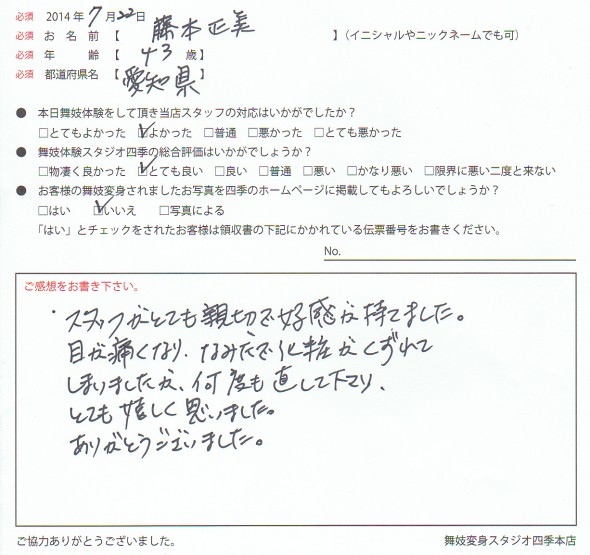 必須 2014年7月22日
必須 お名前【 藤本正美 】(イニシャルやニックネームでも可)
必須 年齢【 43 歳】
必須 都道府県名【 愛知県 】
● 本日舞妓体験をして頂き当店スタッフの対応はいかがでしたか?
□とてもよかった ☑よかった □普通 □悪かった □とても悪かった
● 舞妓体験スタジオ四季の総合評価はいかがでしょうか?
□物凄く良かった ☑とても良い □良い □普通 □悪い □かなり悪い □限界に悪い二度と来ない
● お客様の舞妓変身されましたお写真を四季のホームページに掲載してもよろしいでしょうか?
□はい ☑いいえ □写真による
「はい」とチェックをされたお客様は領収書の下記にかかれている伝票番号をお書きください。
No.
ご感想をお書き下さい。
・スタッフがとても親切で好感が持てました。
目が痛くなり、なみだで化粧がくずれて
しまいましたが、何度も直して下さり、
とても嬉しく思いました。
ありがとうございました。
ご協力ありがとうございました。
舞妓変身スタジオ四季本店